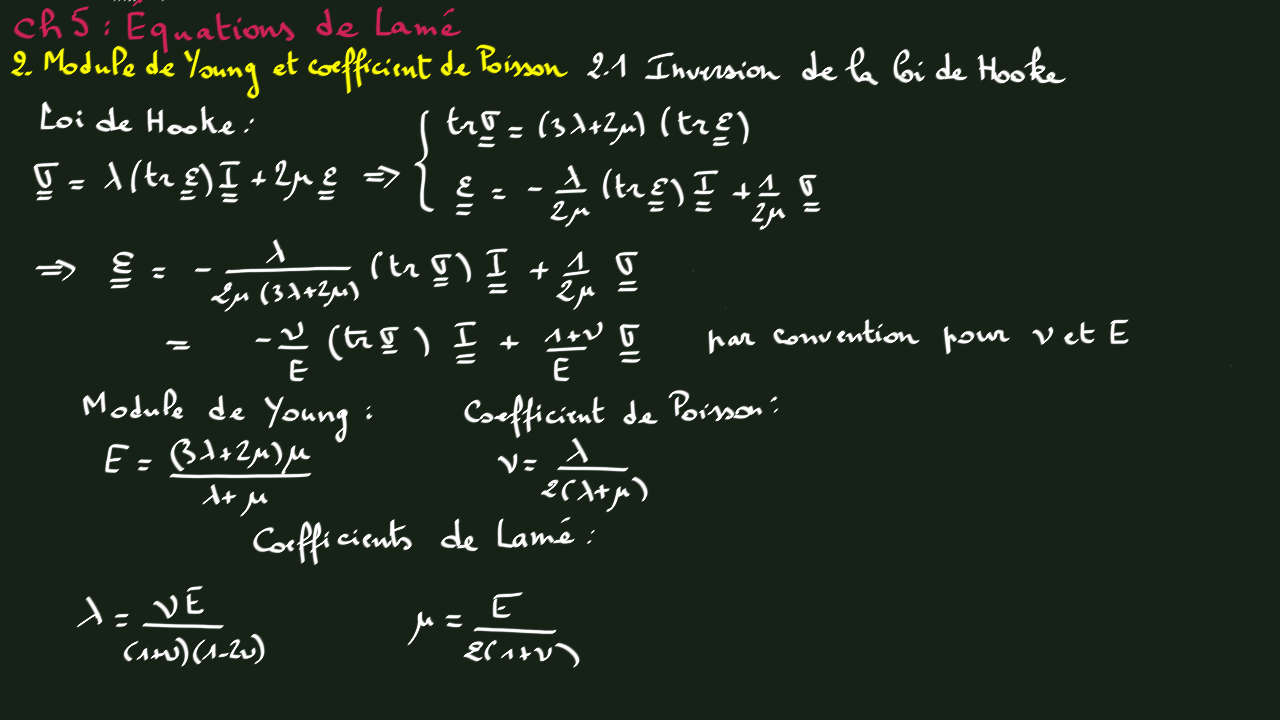 Ch 5 : Équations de Lamé
2. Module de Young et coefficient de Poisson 2.1 Inversion de la loi de Hooke
Loi de Hooke :
σ = λ(tr ε) I + 2μ ε ⇒ { tr σ = (3λ+2μ) (tr ε)
ε = - λ/2μ (tr ε) I + 1/2μ σ
⇒ ε = - λ/2μ(3λ+2μ) (tr σ) I + 1/2μ σ
= - ν/E (tr σ) I + 1+ν/E σ par convention pour ν et E
Module de Young : Coefficient de Poisson :
E = (3λ+2μ)μ/λ+μ ν = λ/2(λ+μ)
Coefficients de Lamé :
λ = νE/(1+ν)(1-2ν) μ = E/2(1+ν)